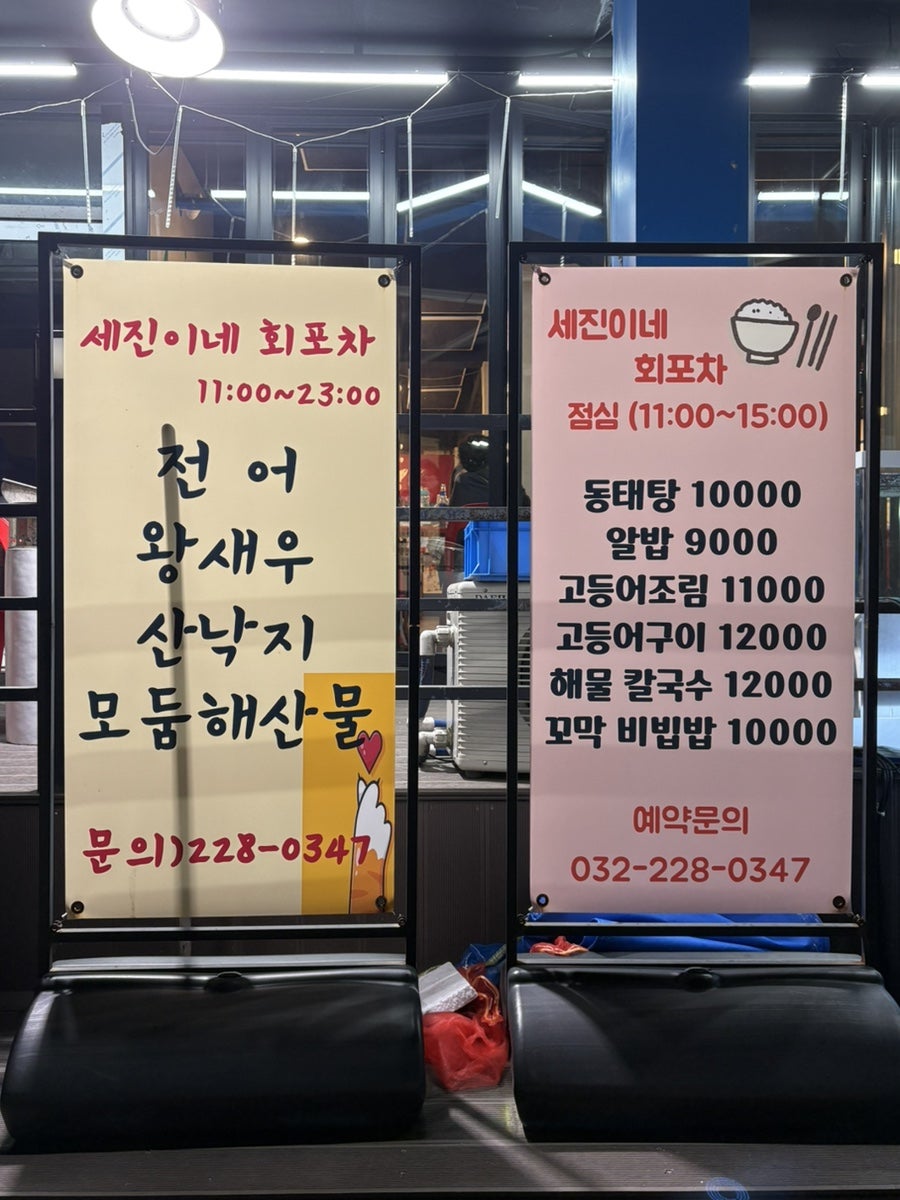 세진이네 회포차
11:00~23:00
전어
왕새우
산낙지
모둠해산물
문의)228-0347
세진이네
회포차
점심 (11:00~15:00)
동태탕 10000
알밥 9000
고등어조림 11000
고등어구이 12000
해물 칼국수 12000
꼬막 비빔밥 10000
예약문의
032-228-0347